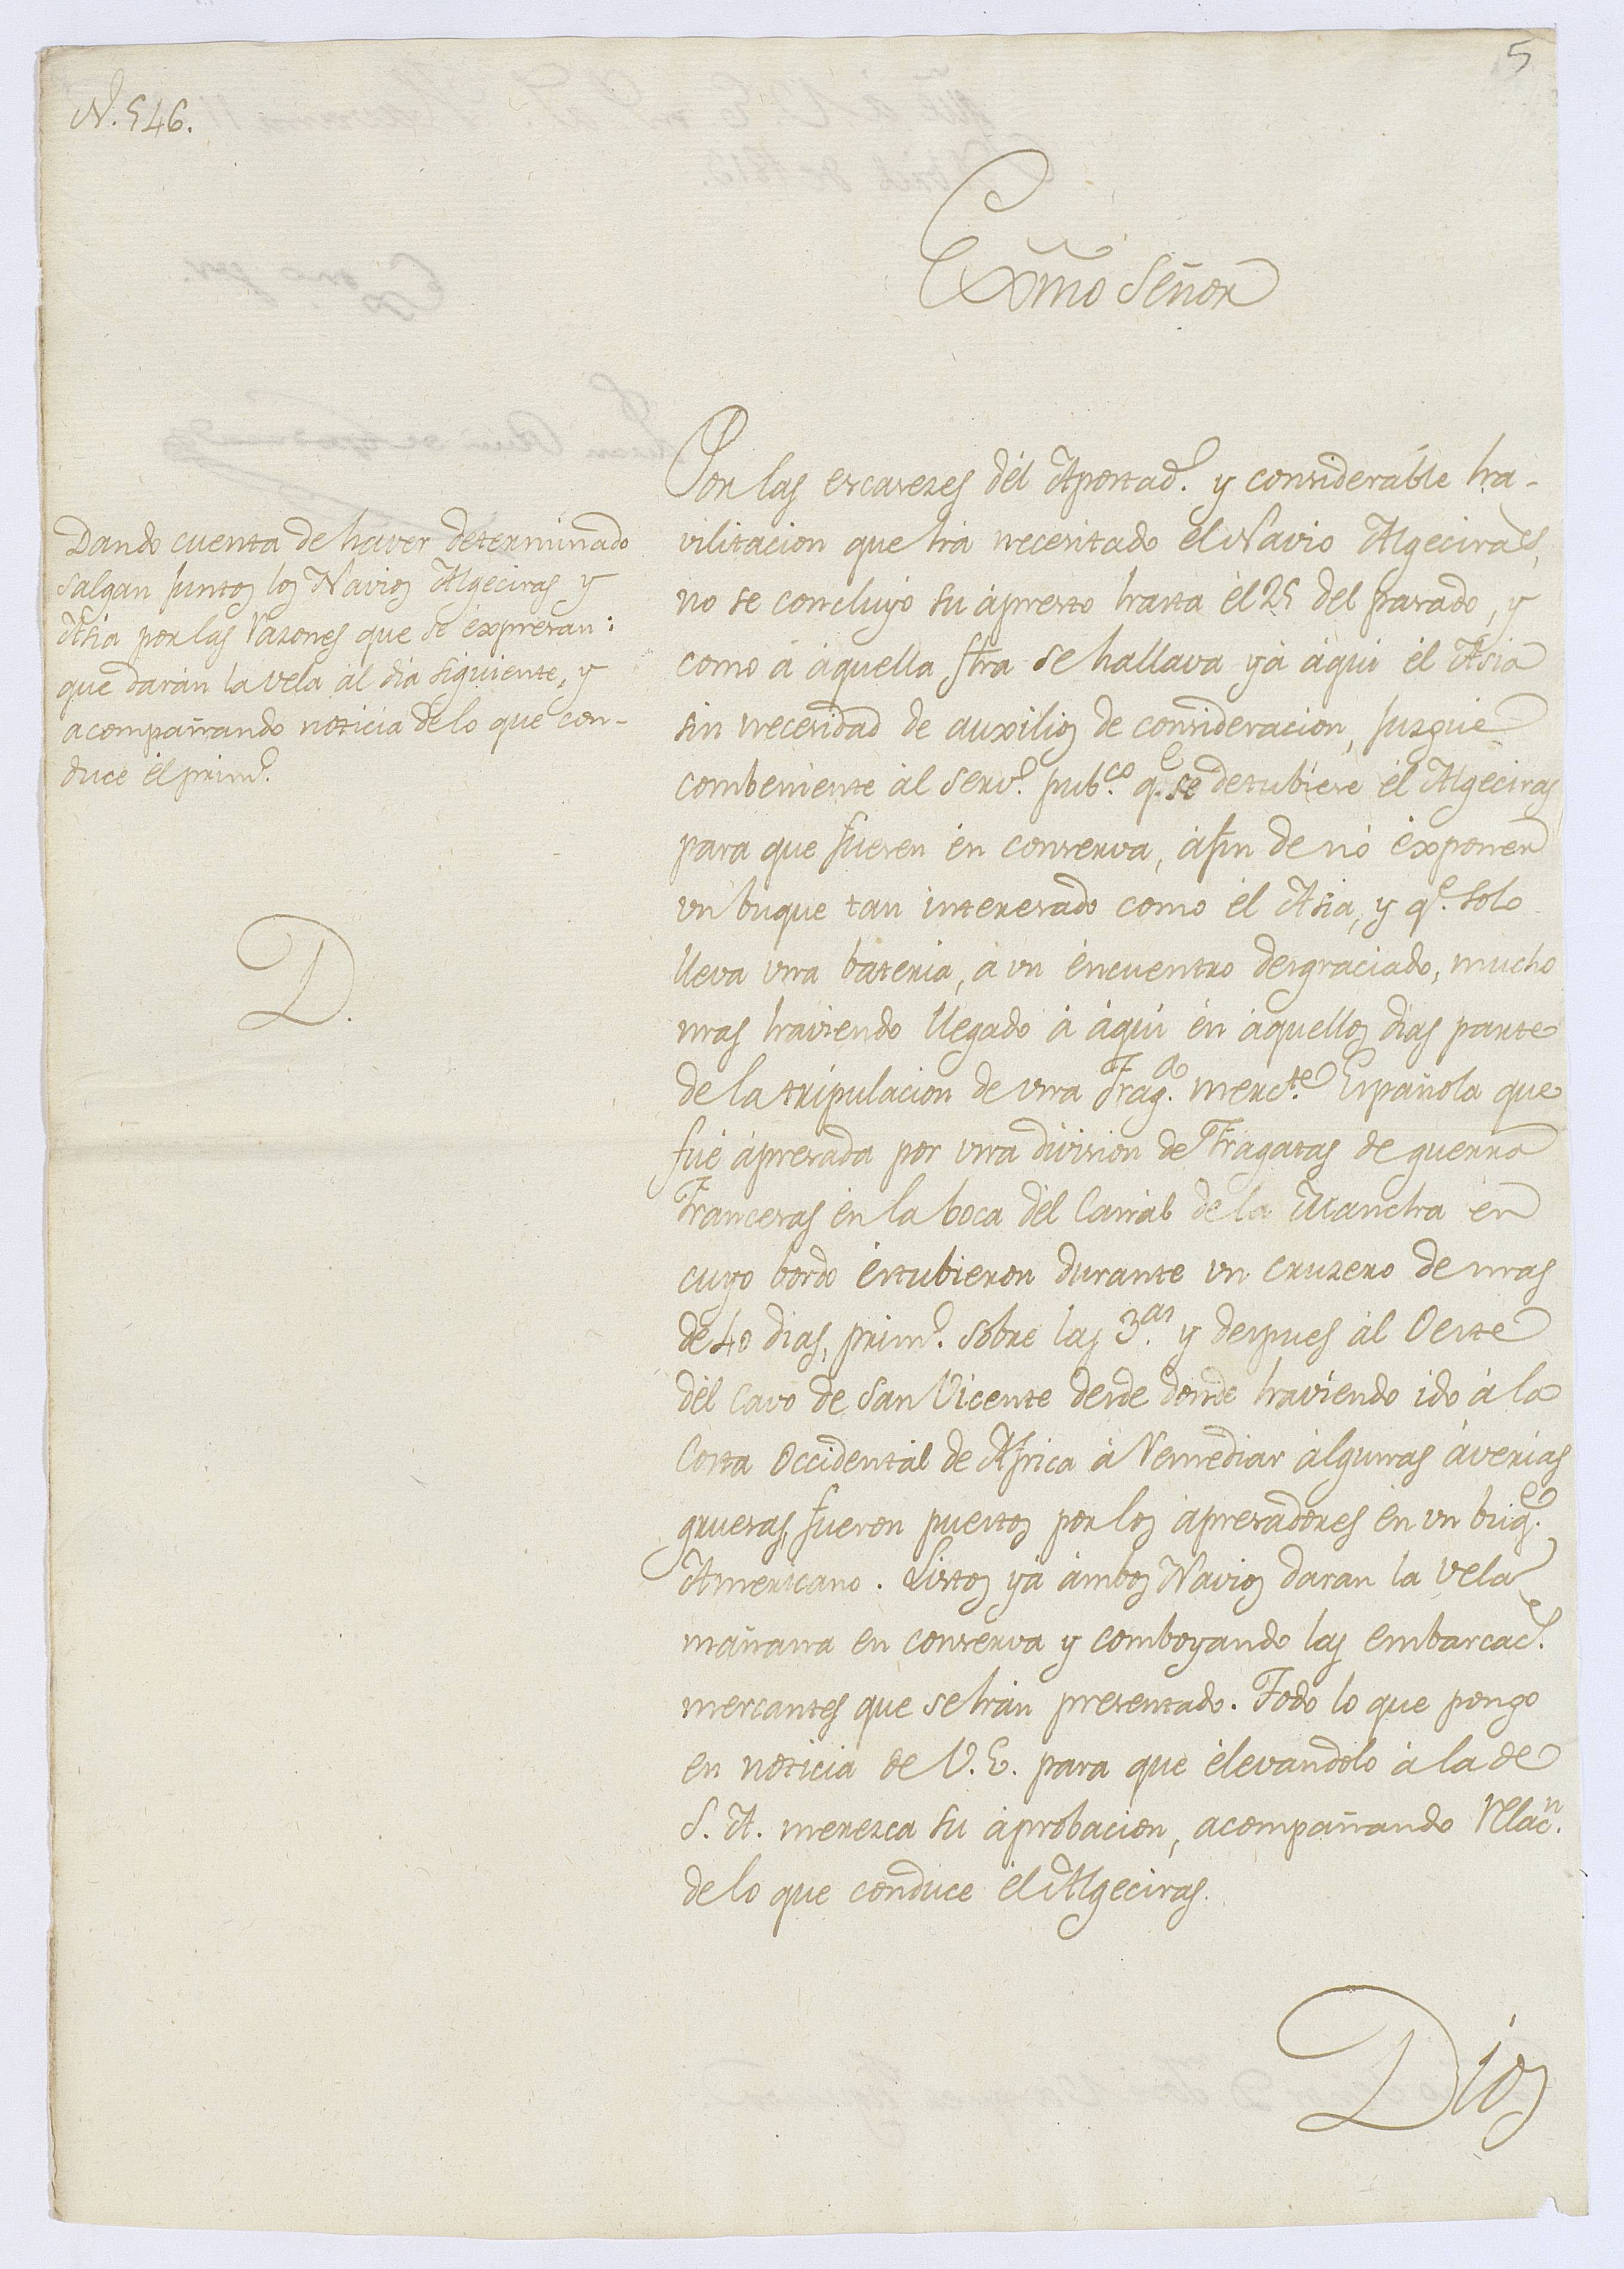 5
N. 546.
Exmõ Señor
Dando cuenta de haver determinado
salgan juntos los Navios Algeciras y
Asia por las razones que se expresan:
que darán la vela al dia siguiente, y
acompañando noticia de lo que con-
duce el prim.º
D.
Por las escaseses del Apostad.º y considerable ha-
vilitacion que há necesitado el Navio Algeciras,
no se concluyó su apresto hasta el 25 del pasado, y
como á aquella fha se hallava yá aqui el Asia
sin necesidad de auxilios de consideracion, juzgué
combeniente al serv.º pub.co q.e se detubiese el Algeciras
para que fuesen en conserva, afin de no exponer
un buque tan interesado como el Asia, y q.e solo
lleva una bateria, á un encuentro desgraciado, mucho
mas haviendo llegado á aqui en aquellos dias parte
de la tripulacion de una Frag.a merc.te Española que
fué apresada por una division de Fragatas de guerra
Francesas en la boca del Canal de la Mancha en
cuyo bordo estubieron durante un cruzero de mas
de 40 dias, prim.º sobre las 3.as y despues al Oeste
del Cavo de San Vicente desde donde haviendo ido á la
Costa Occidental de Africa á remediar algunas averias
gruesas, fueron puestos por los apresadores en un buq.e
Americano. Listos yá ambos Navios daran la vela
mañana en conserva y comboyando las embarcac.s
mercantes que se hán presentado. Todo lo que pongo
en noticia de V. E. para que elevandolo á la de
S. A. merezca su aprobacion, acompañando relac.n
de lo que conduce el Algeciras.
Dios